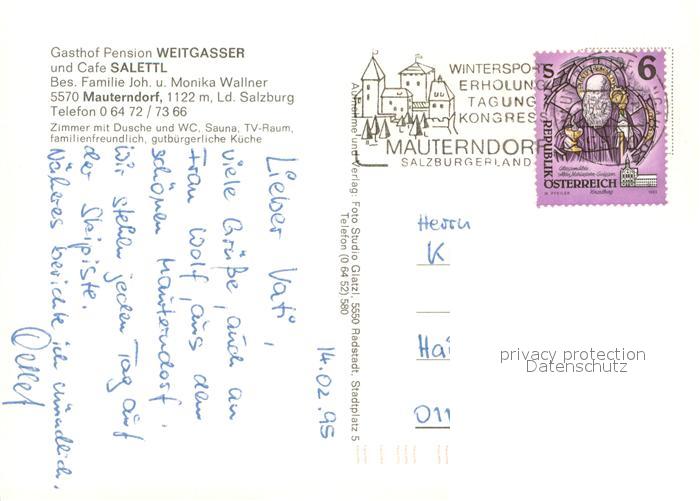 Gasthof Pension WEITGASSER
und Cafe SALETTL
Bes. Familie Joh. u. Monika Wallner
5570 Mauterndorf, 1122 m, Ld. Salzburg
Telefon 0 64 72 / 73 66
Zimmer mit Dusche und WC, Sauna, TV-Raum,
familienfreundlich, gutbürgerliche Küche
14.02.95
Lieber Vati,
viele Grüße, auch an
Frau Wolf, aus dem
schönen Mauterndorf.
Wir stehen jeden Tag auf
der Skipiste.
Näheres berichte ich mündlich.
Detlef
Aufnahme und Verlag: Foto Studio Glatzl, 5550 Radstadt, Stadtplatz 5
Telefon (0 64 52) 580
WINTERSPOR
ERHOLUNG
TAGUNG
KONGRESS
MAUTERNDORF
SALZBURGERLAND
S 6
REPUBLIK
ÖSTERREICH
Herrn
K
Hai
011
privacy protection
Datenschutz